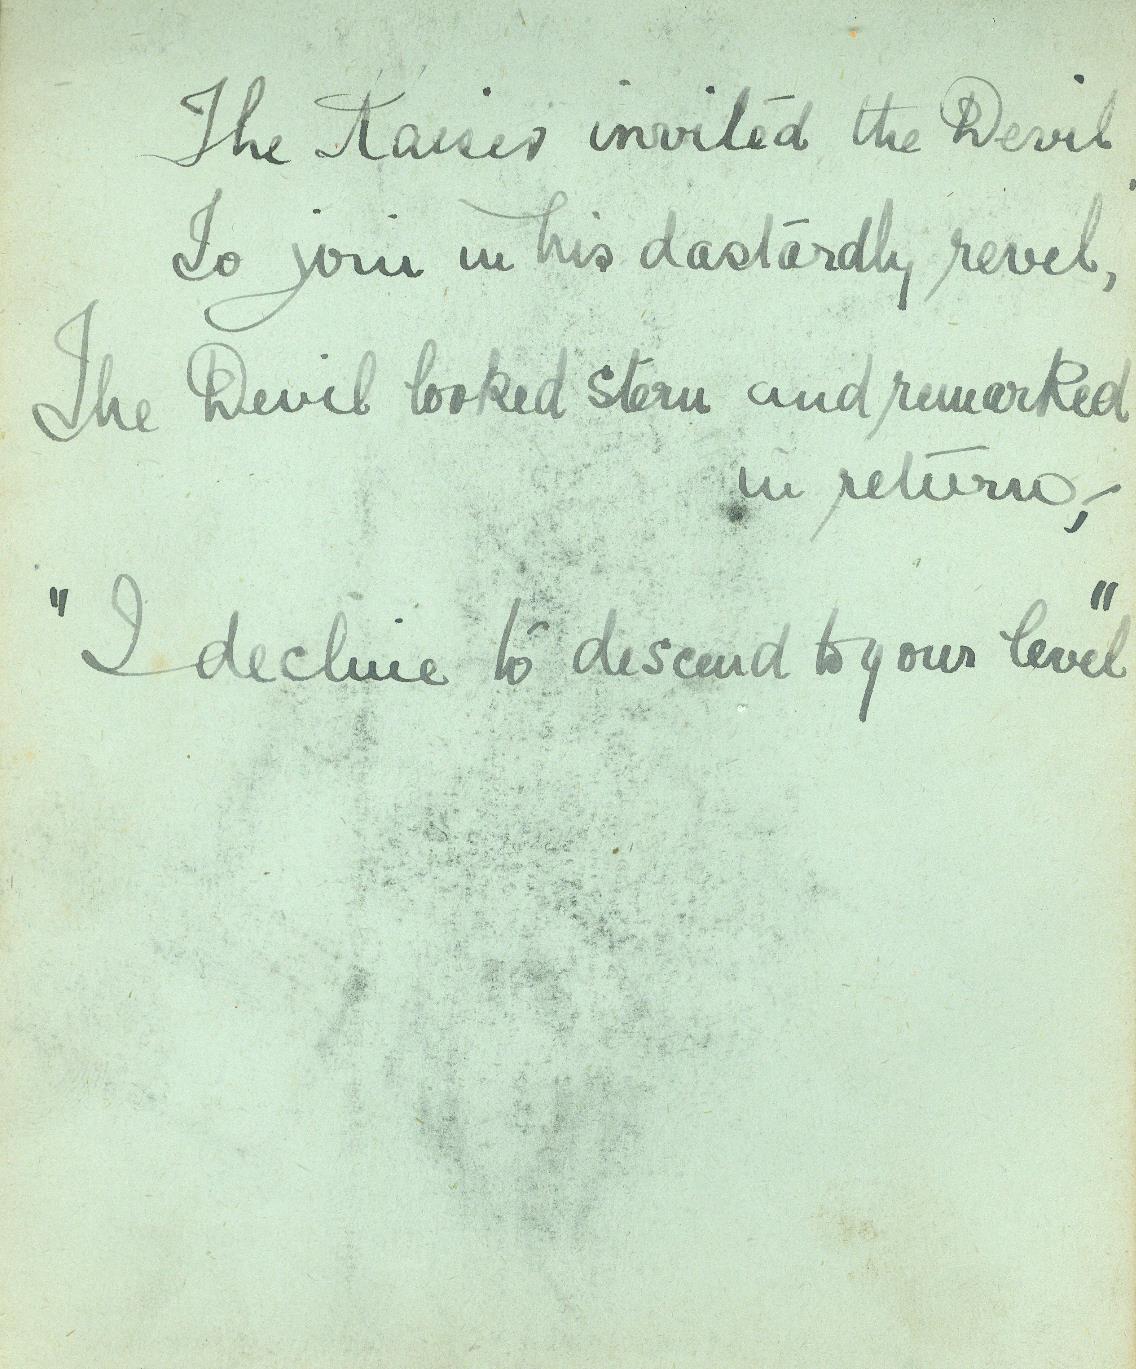 The Kaiser invited the Devil
To join in his dastardly revel,
The Devil looked stern and remarked
in return,-
"I decline to descend to your level"